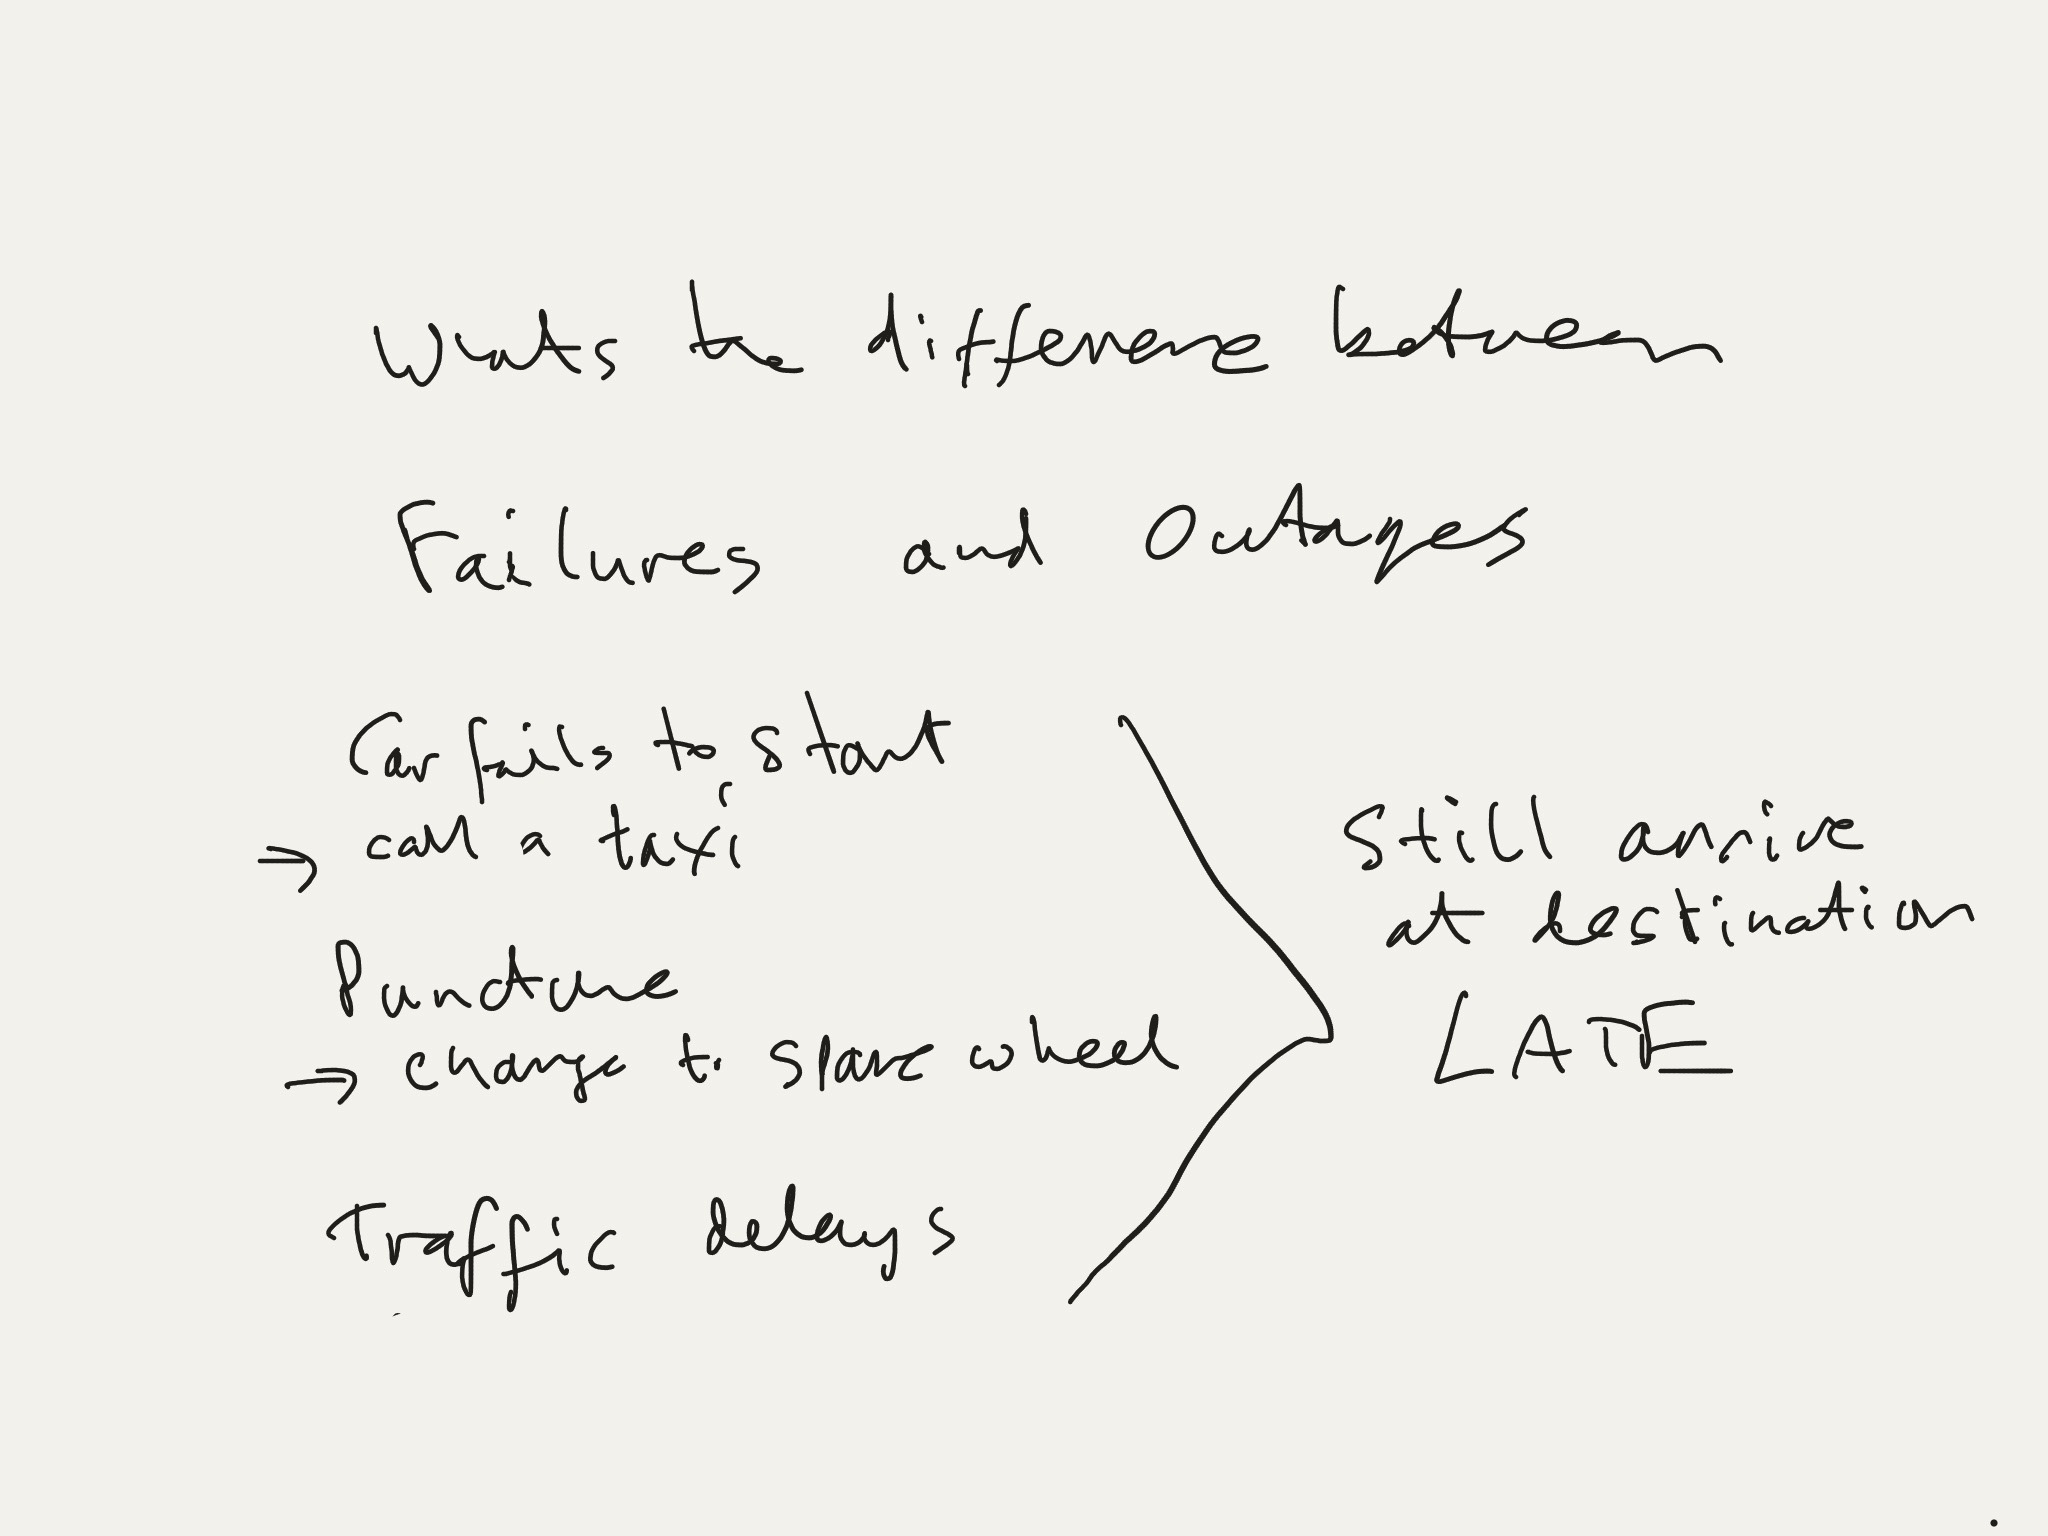 Whats the difference between
Failures and Outages
Car fails to start
→ call a taxi
Puncture
→ change to spare wheel
Traffic delays
Still arrive
at destination
LATE